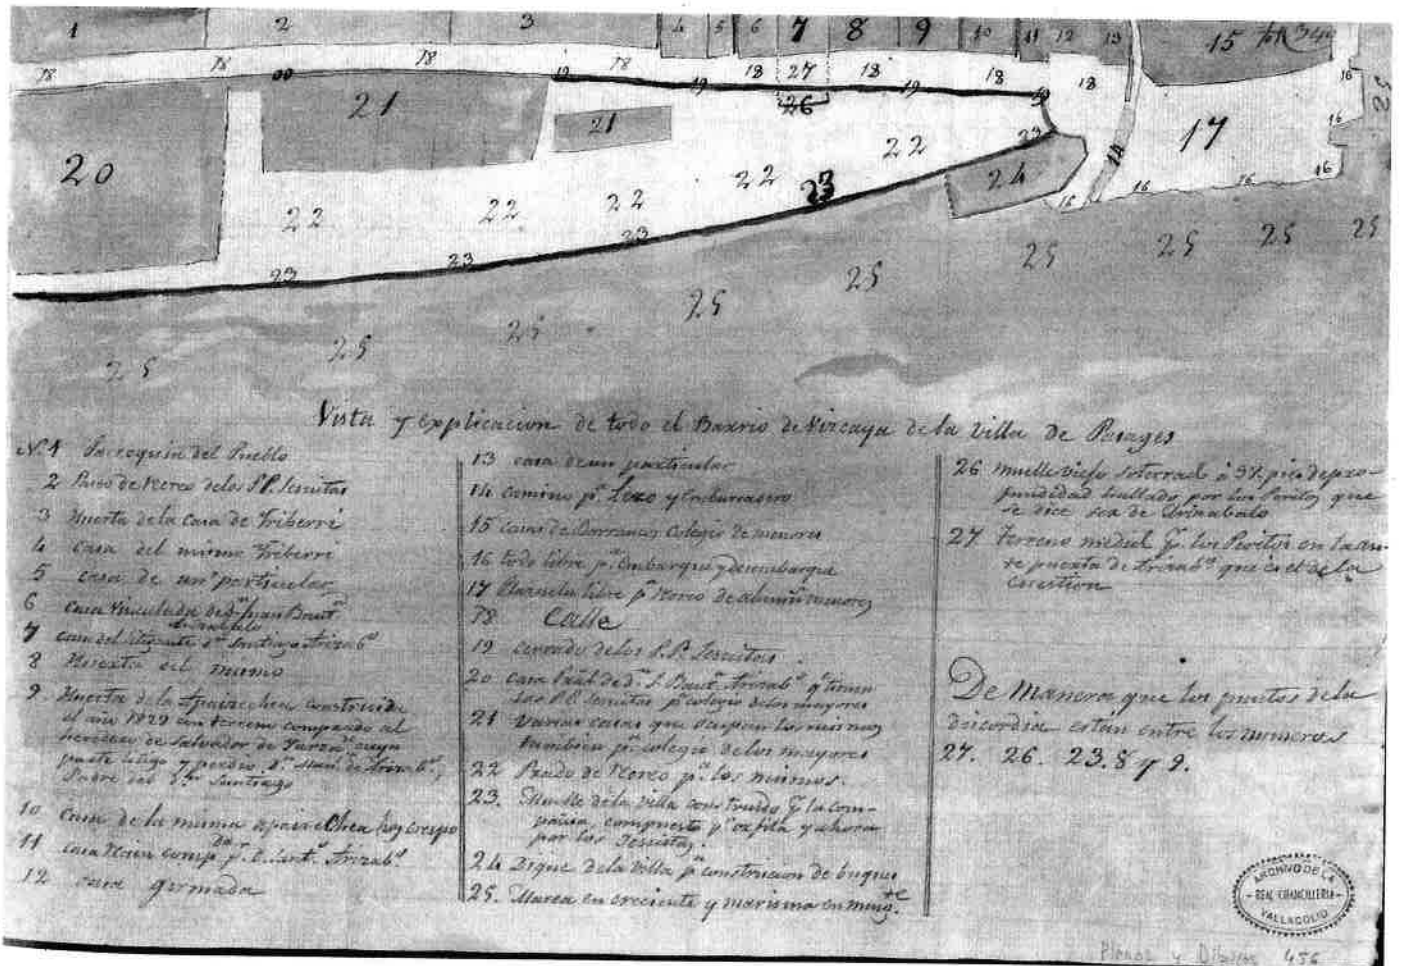 1 2 3 4 5 6 7 8 9 10 11 12 13 15
18 18 18 19 18 19 18 27 18 19 18 19 18 16
20 21 21 26 23 17 16
22 22 22 22 22 23 24 14 16 16 16 16
23 23 23
25 25 25 25 25 25 25 25 25
Vista y explicacion de todo el Barrio de Vizcaya de la Villa de Pasages
N.1 Parroquia del Pueblo
2 Paseo de recreo de los P.P. Jesuitas
3 Huerta de la Casa de Iriberri
4 Casa del mismo Iriberri
5 casa de un particular
6 Casa Vinculada de Dn Juan Baut.
7 casa del litigante Dn Santiago Arizab
8 Huerta del mismo
9. Huerta de la Apairechea construida
el año 1829 con terreno comprado al
heredero de Salvador de cuya
parte litigo y perdio Dn Man. de Arizab,
Padre del Sr Santiago
10 Casa de la misma Apairechea hoy Crespo
11 casa comp. pr
12 casa quemada
13 casa de un particular
14 camino pa Lezo y embarcadero
15 casas de Colegio de menores
16 todo libre pa embarque y desembarque
17 Plazuela libre pa recreo de menores
18 Calle
19 cercado de los P.P. Jesuitas
20 casa de Dn J. Baut. Arizab qe tienen
los P.P. Jesuitas pa colegio de los mayores
21 varias casas que ocupan los mismos
tambien pa colegio de los mayores
22 Prado de recreo pa los mismos.
23. Muelle de la villa construido pr la com-
pañia, compuesto pr y ahora
por los Jesuitas.
24 Dique de la Villa pa construcion de buques
25. Marea en creciente y marisma en meng.te
26 muelle viejo soterrado á 3½ pies de pro-
fundidad hallado por los Peritos que
se dice sea de Arizabalo
27 Terreno medido pr los Peritos en la an-
te puerta de Arizab que es el de la
cuestion
De Manera que los puntos de la
discordia estan entre los numeros
27. 26. 23. 8 y 9.
ARCHIVO DE LA
REAL CHANCILLERIA
VALLADOLID
Planos y Dibujos 456